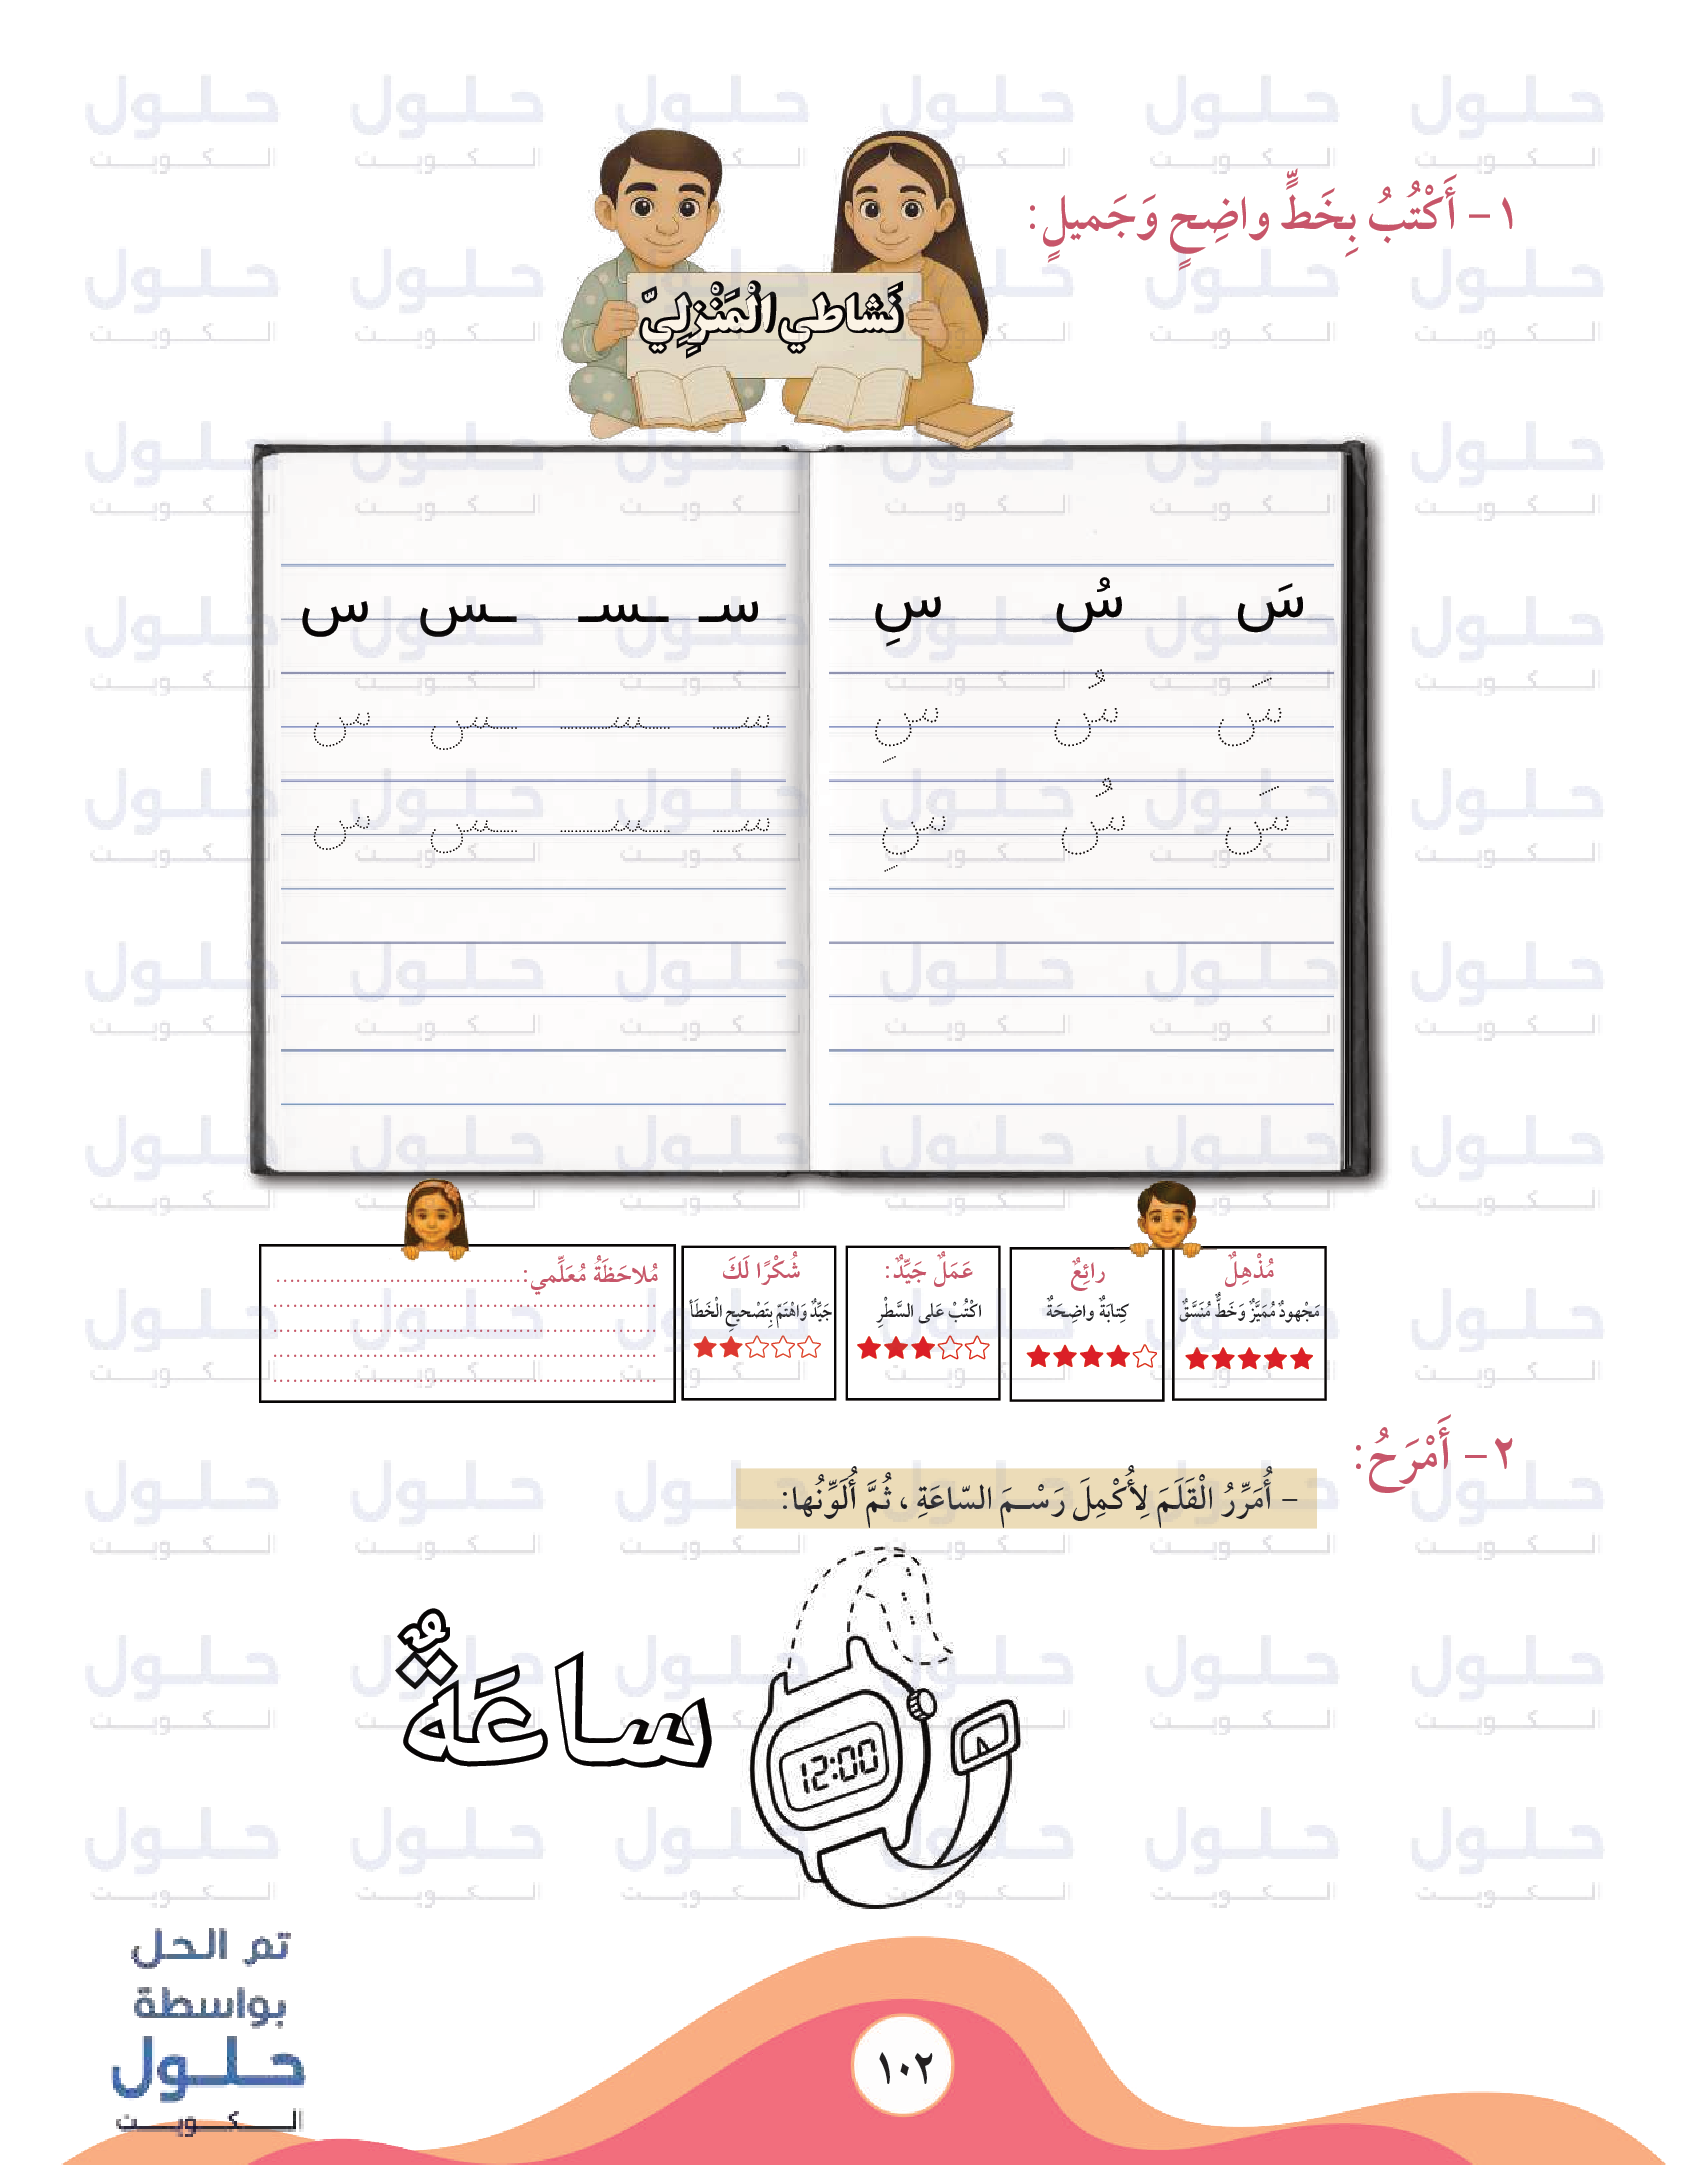 ١- أَكْتُبُ بِخَطٍّ واضِحٍ وَجَميلٍ:
نَشاطي الْمَنْزِلِيّ
سَ سُ سِ
سـ ـسـ ـس س
سَ سُ سِ
سـ ـسـ ـس س
سَ سُ سِ
سـ ـسـ ـس س
مُذْهِلٌ
مَجْهودٌ مُمَيَّزٌ وَخَطٌّ مُنَسَّقٌ
رائِعٌ
كِتابَةٌ واضِحَةٌ
عَمَلٌ جَيِّدٌ:
اكْتُبْ عَلى السَّطْرِ
شُكْرًا لَكَ
جَيِّدٌ وَاهْتَمّ بِتَصْحيحِ الْخَطَأ
مُلاحَظَةُ مُعَلِّمي:
٢- أَمْرَحُ:
- أُمَرِّرُ الْقَلَمَ لِأُكْمِلَ رَسْـمَ السّاعَةِ ، ثُمَّ أُلَوِّنُها:
12:00
ساعَةٌ
تم الحل
بواسطة
حلول
الكويت
١٠٢